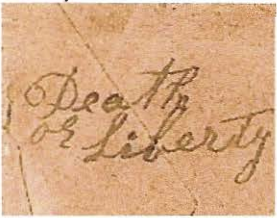 Death
or Liberty